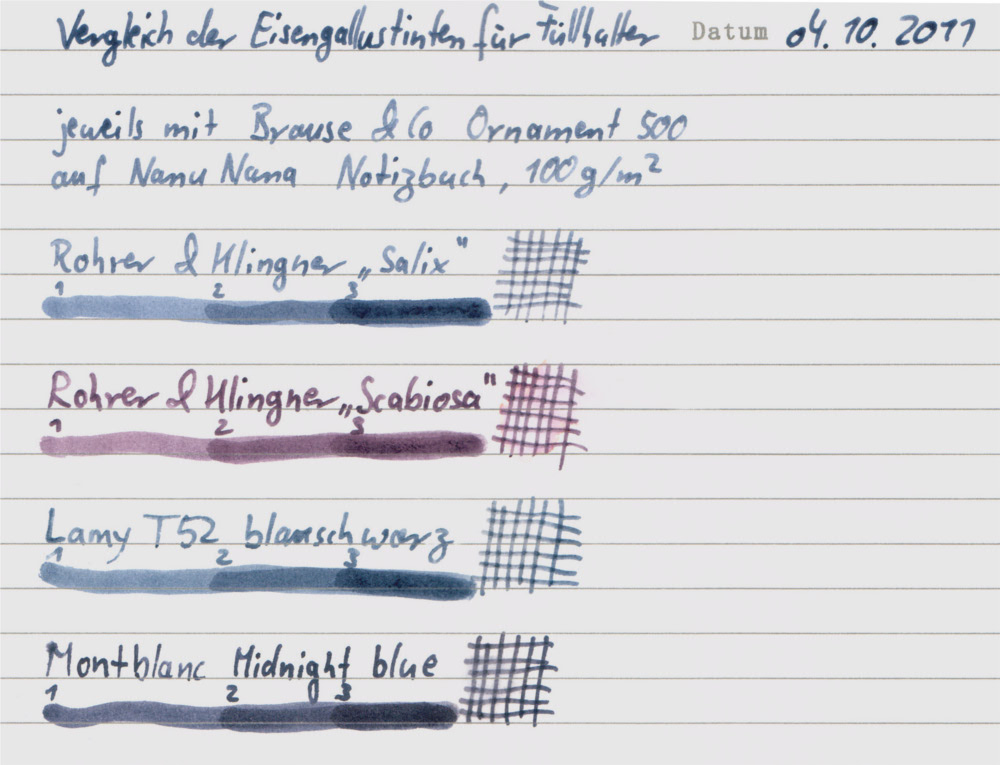 Vergleich der Eisengallustinten für Füllhalter Datum 04.10.2011
jeweils mit Brause & Co Ornament 500
auf Nanu Nana Notizbuch, 100 g/m²
Rohrer & Klingner „Salix“
1 2 3
Rohrer & Klingner „Scabiosa“
1 2 3
Lamy T52 blauschwarz
1 2 3
Montblanc Midnight blue
1 2 3